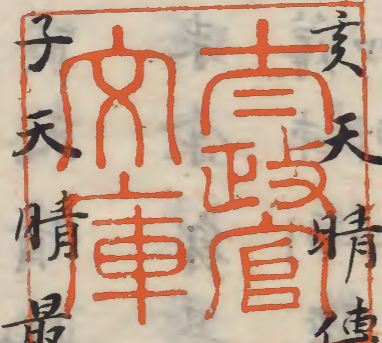 亥天晴傳
太政官
文庫
子天晴最